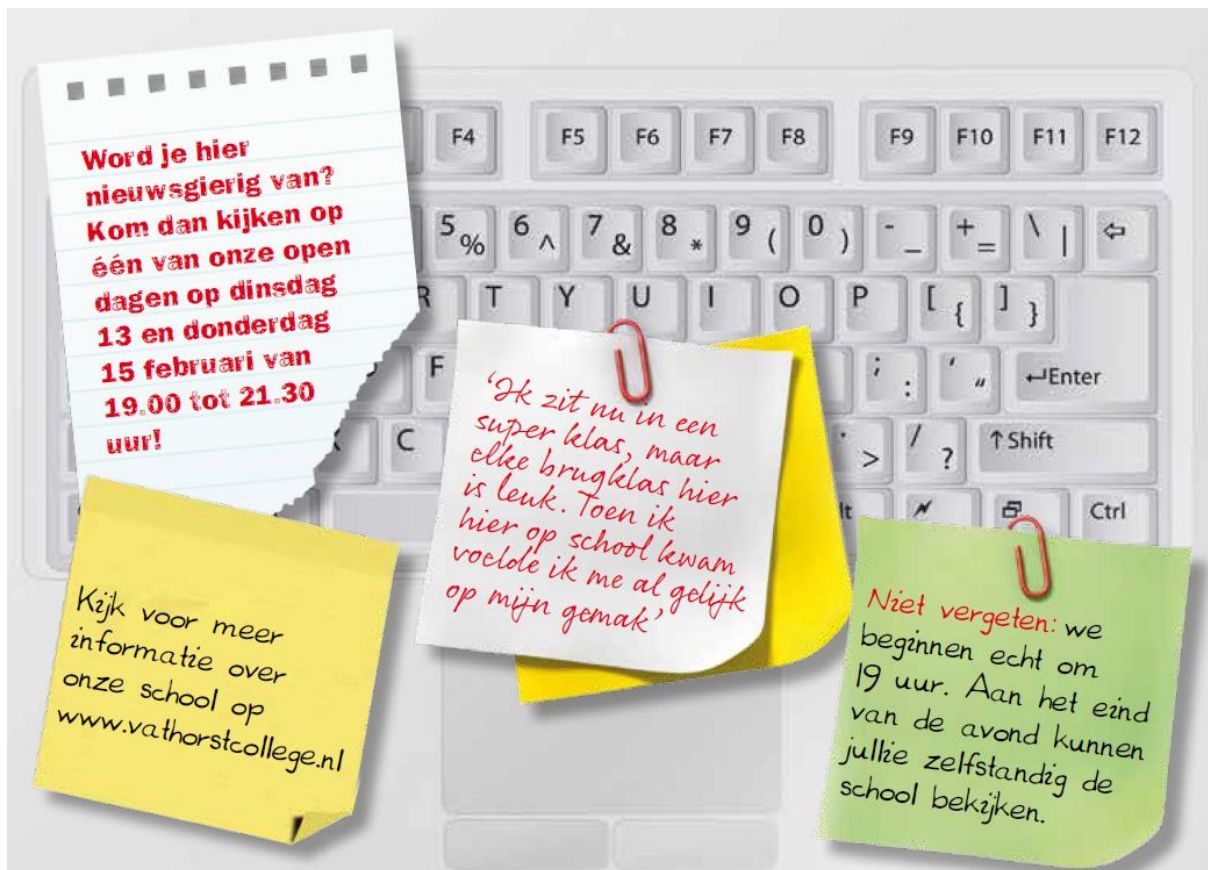 Word je hier
nieuwsgierig van?
Kom dan kijken op
één van onze open
dagen op dinsdag
13 en donderdag
15 februari van
19.00 tot 21.30
uur!
F4 F5 F6 F7 F8 F9 F10 F11 F12
5 % 6 ^ 7 & 8 * 9 ( 0 ) - _ + = \ |
R T Y U I O P [ { ] }
F ; : ' " Enter
C > / ? Shift
Ctrl
'Ik zit nu in een
super klas, maar
elke brugklas hier
is leuk. Toen ik
hier op school kwam
voelde ik me al gelijk
op mijn gemak'
Kijk voor meer
informatie over
onze school op
www.vathorstcollege.nl
Niet vergeten: we
beginnen echt om
19 uur. Aan het eind
van de avond kunnen
jullie zelfstandig de
school bekijken.